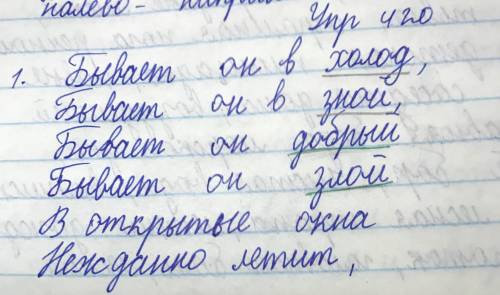 налево -
Упр 490
1. Бывает он в холод,
Бывает он в зной,
Бывает он добрый
Бывает он злой
В открытые окна
Нежданно летит,